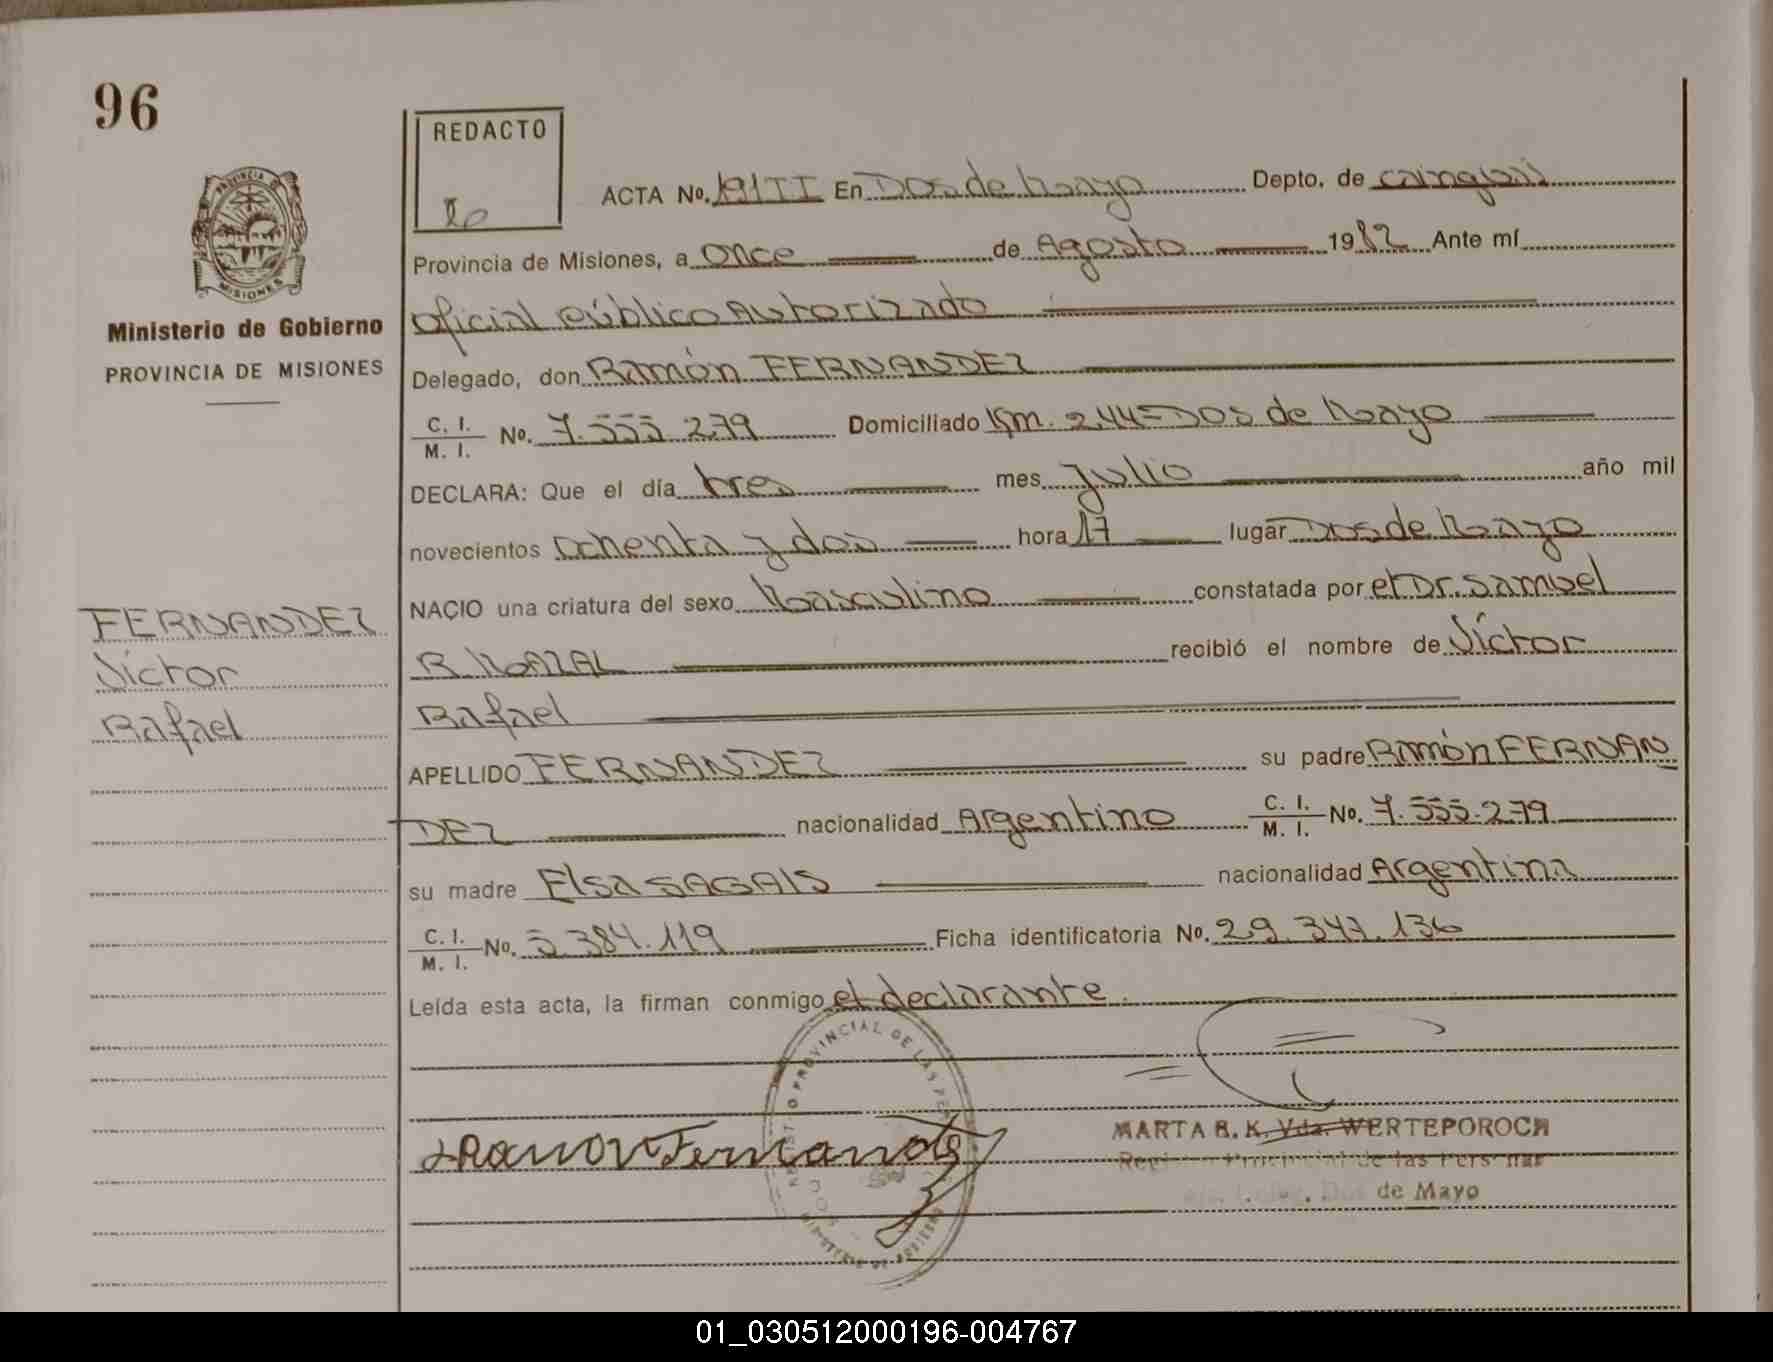 96
REDACTO
PROVINCIA DE
MISIONES
Ministerio de Gobierno
PROVINCIA DE MISIONES
FERNANDEZ
Víctor
Rafael
ACTA No. 191TI En Dos de Mayo Depto. de cainguás
Provincia de Misiones, a once de Agosto 1982 Ante mí
Oficial Público Autorizado
Delegado, don Ramón FERNANDEZ
C. I.
M. I. No. 7.555.279 Domiciliado Km. 244-Dos de Mayo
DECLARA: Que el día tres mes julio año mil
novecientos ochenta y dos hora 17 lugar Dos de Mayo
NACIO una criatura del sexo Masculino constatada por el Dr. Samuel
R. MAZAL recibió el nombre de Víctor
Rafael
APELLIDO FERNANDEZ su padre Ramón FERNAN
DEZ nacionalidad Argentino C. I.
M. I. No. 7.555.279
su madre Elsa SAGAIS nacionalidad Argentina
C. I.
M. I. No. 5.384.119 Ficha identificatoria No. 29.347.136
Leída esta acta, la firman conmigo el declarante.
PROVINCIAL DE LAS PE
Ramon Fernandez
MARTA B. K. Vda. WERTEPOROCH
Provincial de las Personas
Dos de Mayo
01_030512000196-004767